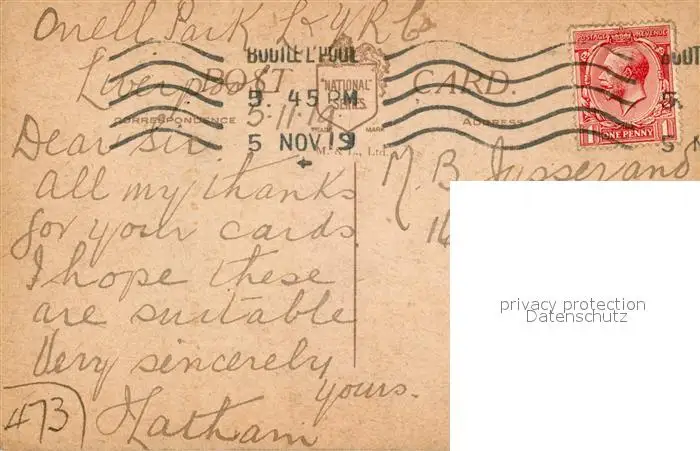 Orrell Park L & Y R Co
Liverpool
5-11-19
BOOTLE L'POOL
3. 45 PM
5 NOV 19
POST CARD.
"NATIONAL"
SERIES
CORRESPONDENCE
TRADE MARK
ADDRESS
M. & L., Ltd.
POSTAGE REVENUE
ONE PENNY
BOOTL
5 N
Dear Sir
All my thanks
for your cards
I hope these
are suitable
Very sincerely
yours.
Latham
473
M. B. Jusserand
14
privacy protection
Datenschutz